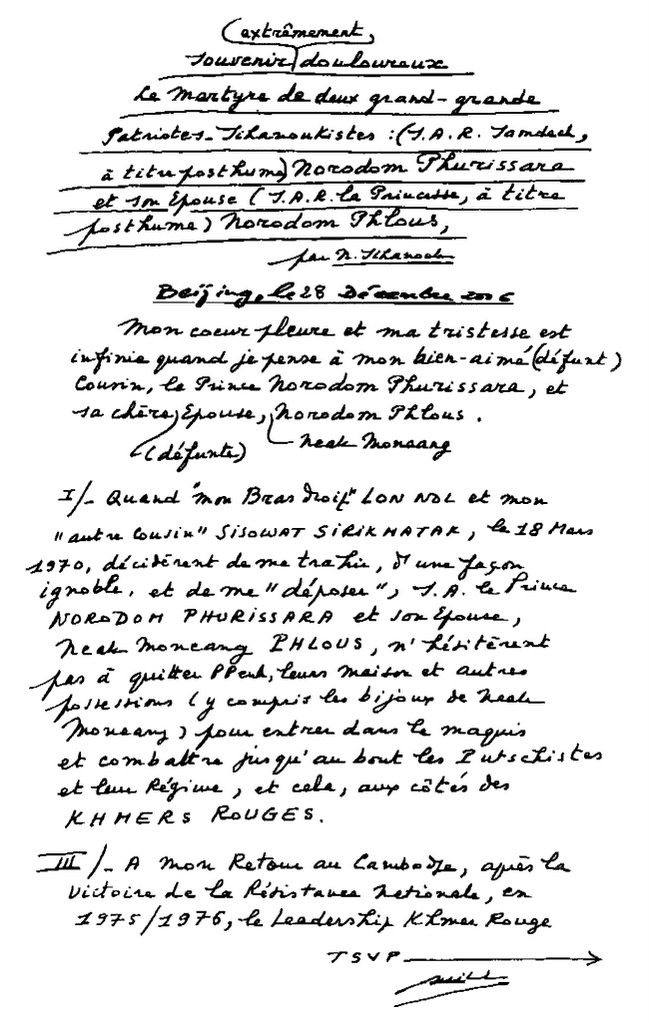 (extrêmement,
Souvenir douloureux
Le Martyre de deux grand-grande
Patriotes-Sihanoukistes : (S.A.R. Samdech,
à titre posthume) Norodom Phurissara
et son Epouse (S.A.R. la Princesse, à titre
posthume) Norodom Phlous,
par N. Sihanouk
Beijing, le 28 Décembre 2006
Mon coeur pleure et ma tristesse est
infinie quand je pense à mon bien-aimé (défunt)
Cousin, le Prince Norodom Phurissara, et
sa chère, Epouse, Norodom Phlous.
(défunte) Neak Moneang
I/- Quand "mon Bras droit" LON NOL et mon
"autre cousin" SISOWAT SIRIKMATAK, le 18 Mars
1970, décidèrent de me trahir, d'une façon
ignoble, et de me "déposer", S.A. le Prince
NORODOM PHURISSARA et son Epouse,
Neak Moneang PHLOUS, n'hésitèrent
pas à quitter PPenh, leurs maison et autres
possessions (y compris les bijoux de Neak
Moneang) pour entrer dans le maquis
et combattre jusqu'au bout les Putschistes
et leur Régime, et cela, aux côtés des
KHMERS ROUGES.
III/- A mon Retour au Cambodge, après la
victoire de la Résistance Nationale, en
1975/1976, le Leadership Khmer Rouge
TSVP